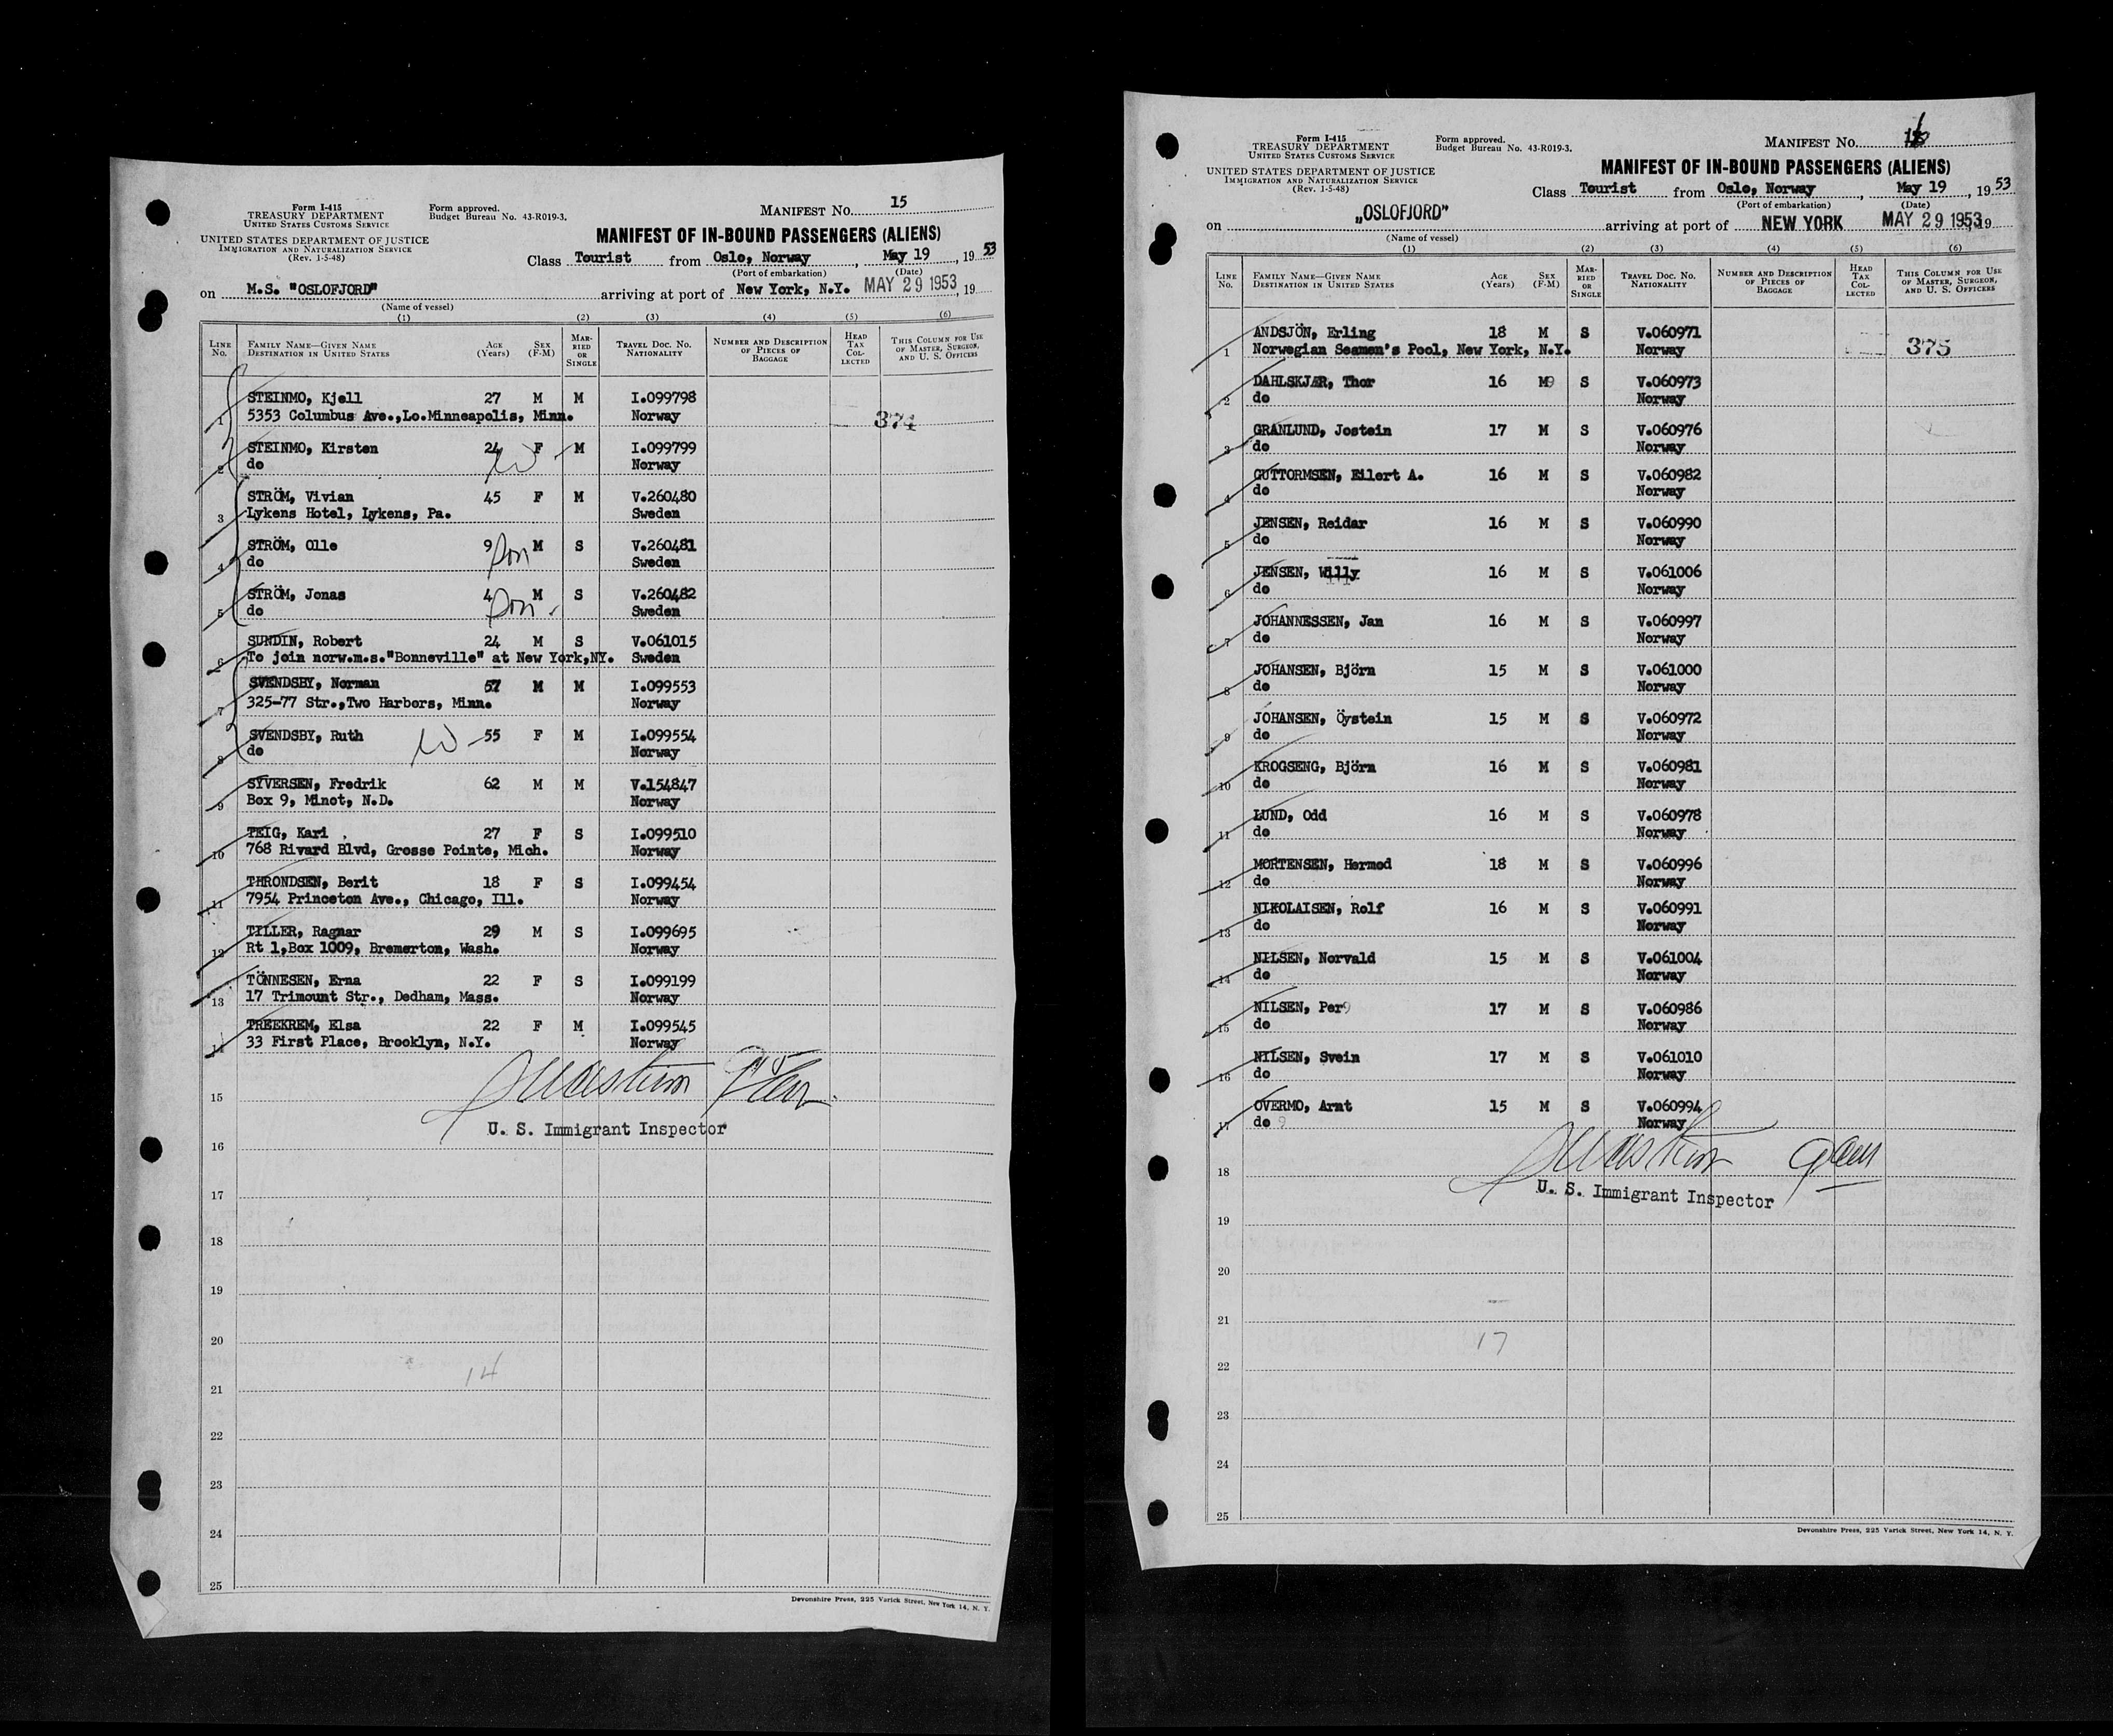 Form I-415
TREASURY DEPARTMENT
UNITED STATES CUSTOMS SERVICE
UNITED STATES DEPARTMENT OF JUSTICE
IMMIGRATION AND NATURALIZATION SERVICE
(Rev. 1-5-48)
Form approved.
Budget Bureau No. 43-R019-3.
MANIFEST No. 15
MANIFEST OF IN-BOUND PASSENGERS (ALIENS)
Class Tourist from Oslo, Norway, May 19, 1953
(Port of embarkation) (Date)
on M.S. "OSLOFJORD" arriving at port of New York, N.Y. MAY 29 1953, 19
(Name of vessel)
(1) (2) (3) (4) (5) (6)
LINE No. FAMILY NAME—GIVEN NAME DESTINATION IN UNITED STATES AGE (Years) SEX (F-M) MARRIED OR SINGLE TRAVEL DOC. No. NATIONALITY NUMBER AND DESCRIPTION OF PIECES OF BAGGAGE HEAD TAX COLLECTED THIS COLUMN FOR USE OF MASTER, SURGEON, AND U. S. OFFICERS
1 STEINMO, Kjell 27 M M I.099798
5353 Columbus Ave.,Lo.Minneapolis, Minn. Norway 374
2 STEINMO, Kirsten 24 F M I.099799
do W Norway
3 STRÖM, Vivian 45 F M V.260480
Lykens Hotel, Lykens, Pa. Sweden
4 STRÖM, Olle 9 son M S V.260481
do Sweden
5 STRÖM, Jonas 4 son M S V.260482
do Sweden
6 SUNDIN, Robert 24 M S V.061015
To join norw.m.s."Bonneville" at New York,NY. Sweden
7 SVENDSBY, Norman 57 M M I.099553
325-77 Str.,Two Harbors, Minn. Norway
8 SVENDSBY, Ruth W 55 F M I.099554
do Norway
9 SYVERSEN, Fredrik 62 M M V.154847
Box 9, Minot, N.D. Norway
10 TEIG, Kari 27 F S I.099510
768 Rivard Blvd, Grosse Pointe, Mich. Norway
11 THRONDSEN, Berit 18 F S I.099454
7954 Princeton Ave., Chicago, Ill. Norway
12 TILLER, Ragnar 29 M S I.099695
Rt 1,Box 1009, Bremerton, Wash. Norway
13 TÖNNESEN, Erna 22 F S I.099199
17 Trimount Str., Dedham, Mass. Norway
14 TREEKREM, Elsa 22 F M I.099545
33 First Place, Brooklyn, N.Y. Norway
15
U. S. Immigrant Inspector
16
17
18
19
20
14
21
22
23
24
25
Devonshire Press, 225 Varick Street, New York 14, N. Y.
Form I-415
TREASURY DEPARTMENT
UNITED STATES CUSTOMS SERVICE
UNITED STATES DEPARTMENT OF JUSTICE
IMMIGRATION AND NATURALIZATION SERVICE
(Rev. 1-5-48)
Form approved.
Budget Bureau No. 43-R019-3.
MANIFEST No.
MANIFEST OF IN-BOUND PASSENGERS (ALIENS)
Class Tourist from Oslo, Norway, May 19, 1953
(Port of embarkation) (Date)
on „OSLOFJORD" arriving at port of NEW YORK MAY 29 1953, 19
(Name of vessel)
(1) (2) (3) (4) (5) (6)
LINE No. FAMILY NAME—GIVEN NAME DESTINATION IN UNITED STATES AGE (Years) SEX (F-M) MARRIED OR SINGLE TRAVEL DOC. No. NATIONALITY NUMBER AND DESCRIPTION OF PIECES OF BAGGAGE HEAD TAX COLLECTED THIS COLUMN FOR USE OF MASTER, SURGEON, AND U. S. OFFICERS
1 ANDSJÖN, Erling 18 M S V.060971
Norwegian Seamen's Pool, New York, N.Y. Norway 375
2 DAHLSKJÆR, Thor 16 M S V.060973
do Norway
3 GRANLUND, Jostein 17 M S V.060976
do Norway
4 GUTTORMSEN, Eilert A. 16 M S V.060982
do Norway
5 JENSEN, Reidar 16 M S V.060990
do Norway
6 JENSEN, Willy 16 M S V.061006
do Norway
7 JOHANNESSEN, Jan 16 M S V.060997
do Norway
8 JOHANSEN, Björn 15 M S V.061000
do Norway
9 JOHANSEN, Öystein 15 M S V.060972
do Norway
10 KROGSENG, Björn 16 M S V.060981
do Norway
11 LUND, Odd 16 M S V.060978
do Norway
12 MORTENSEN, Hermod 18 M S V.060996
do Norway
13 NIKOLAISEN, Rolf 16 M S V.060991
do Norway
14 NILSEN, Norvald 15 M S V.061004
do Norway
15 NILSEN, Per 17 M S V.060986
do Norway
16 NILSEN, Svein 17 M S V.061010
do Norway
17 OVERMO, Arnt 15 M S V.060994
do Norway
18
U. S. Immigrant Inspector
19
20
21
17
22
23
24
25
Devonshire Press, 225 Varick Street, New York 14, N. Y.